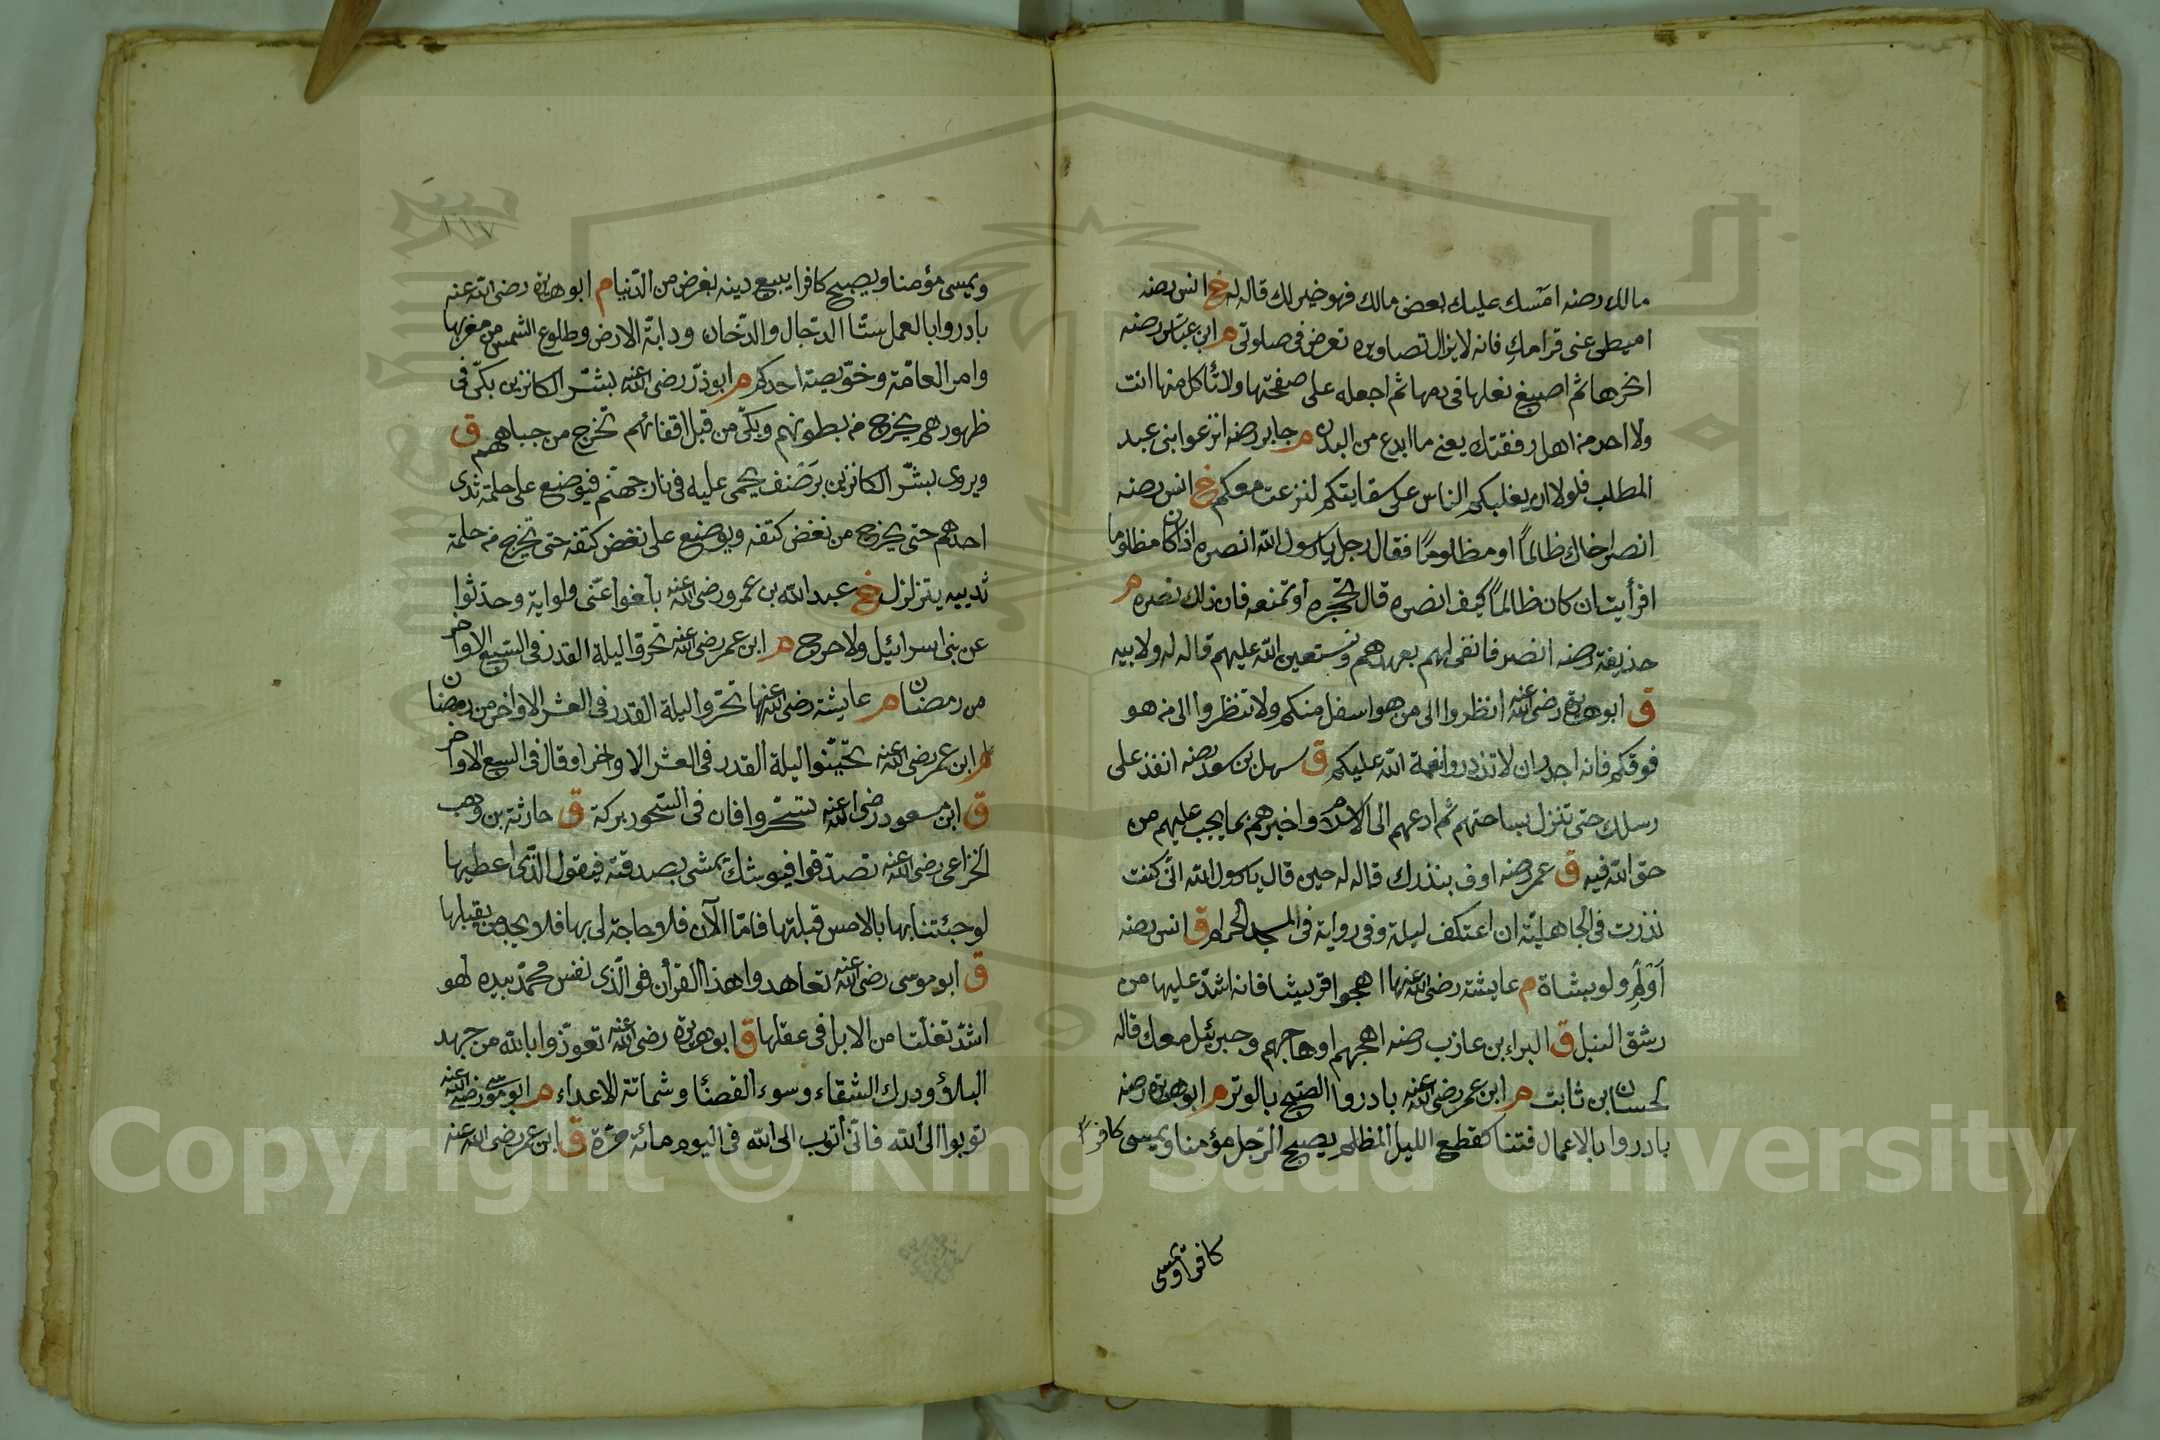 مالك رضه امسك عليك بعض مالك فهو خير لك قاله له خ انس رضه
اميطى عنى قرامك فانه لا يزال تصاويره تعرض فى صلوتى م ابن عباس رضه
انحرها ثم اصبغ نعلها فى دمها ثم اجعله على صفحتها ولا تأكل منها انت
ولا احد من اهل رفقتك يعنى ما ابدع من البدن م جابر رضه انزعوا بنى عبد
المطلب فلولا ان يغلبكم الناس على سقايتكم لنزعت معكم خ انس رضه
انصر اخاك ظالمًا او مظلومًا فقال رجل يا رسول الله انصره اذا كان مظلوما
افرأيت ان كان ظالمًا كيف انصره قال تحجزه او تمنعه فان ذلك نصره م
حذيفة رضه انصرفا نفى لهم بعهدهم ونستعين الله عليهم قاله له ولابيه
ق ابو هريرة رضى الله عنه انظروا الى من هو اسفل منكم ولا تنظروا الى من هو
فوقكم فانه اجدر ان لا تزدروا نعمة الله عليكم ق سهل بن سعد رضه انفذ على
رسلك حتى تنزل بساحتهم ثم ادعهم الى الاسلام واخبرهم بما يجب عليهم من
حق الله فيه ق عمر رضه اوف بنذرك قاله له حين قال يا رسول الله انى كنت
نذرت فى الجاهلية ان اعتكف ليلة وفى رواية فى المسجد الحرام ق انس رضه
أولم ولو بشاة م عايشة رضى الله عنها اهجوا قريشا فانه اشد عليها من
رشق النبل ق البراء بن عازب رضه اهجهم او هاجهم وجبرئيل معك قاله
لحسان بن ثابت م ابن عمر رضى الله عنه بادروا الصبح بالوتر م ابو هريرة رضه
بادروا بالاعمال فتنا كقطع الليل المظلم يصبح الرجل مؤمنا ويمسى كافرًا
كافرا ويمسى
١١٧
ويمسى مؤمنا ويصبح كافرا يبيع دينه بعرض من الدنيا م ابو هريرة رضى الله عنه
بادروا بالعمل ستا الدجال والدخان ودابة الارض وطلوع الشمس من مغربها
وامر العامة وخويصة احدكم م ابو ذر رضى الله عنه بشر الكانزين بكى فى
ظهورهم يخرج من بطونهم وبكى من قبل اقفائهم تخرج من جباههم ق
ويروى بشر الكانزين برضف يحمى عليه فى نار جهنم فيوضع على حلمة ثدى
احدهم حتى يخرج من نغض كتفه ويوضع على نغض كتفه حتى يخرج من حلمة
ثدييه يتزلزل خ عبد الله بن عمرو رضى الله عنه بلغوا عنى ولو اية وحدثوا
عن بنى اسرائيل ولا حرج م ابن عمر رضى الله عنه تحروا ليلة القدر فى السبع الاواخر
من رمضان م عايشة رضى الله عنها تحروا ليلة القدر فى العشر الاواخر من رمضان
م ابن عمر رضى الله عنه تحينوا ليلة القدر فى العشر الاواخر او قال فى السبع الاواخر
ق ابن مسعود رضى الله عنه تسحروا فان فى السحور بركة ق حارثة بن وهب
الخزاعى رضى الله عنه تصدقوا فيوشك يمشى بصدقته فيقول الذى اعطيها
لو جئتنا بها بالامس قبلتها فاما الآن فلا حاجة لى بها فلا يجد من يقبلها
ق ابو موسى رضى الله عنه تعاهدوا هذا القرأن فو الذى نفس محمد بيده لهو
اشد تفلتا من الابل فى عقلها ق ابو هريرة رضى الله عنه تعوذوا بالله من جهد
البلاء ودرك الشقاء وسوء القضاء وشماتة الاعداء م ابو موسى رضى الله عنه
توبوا الى الله فانى أتوب الى الله فى اليوم مائة مرة ق ابن عمر رضى الله عنه
Copyright © King Saud University